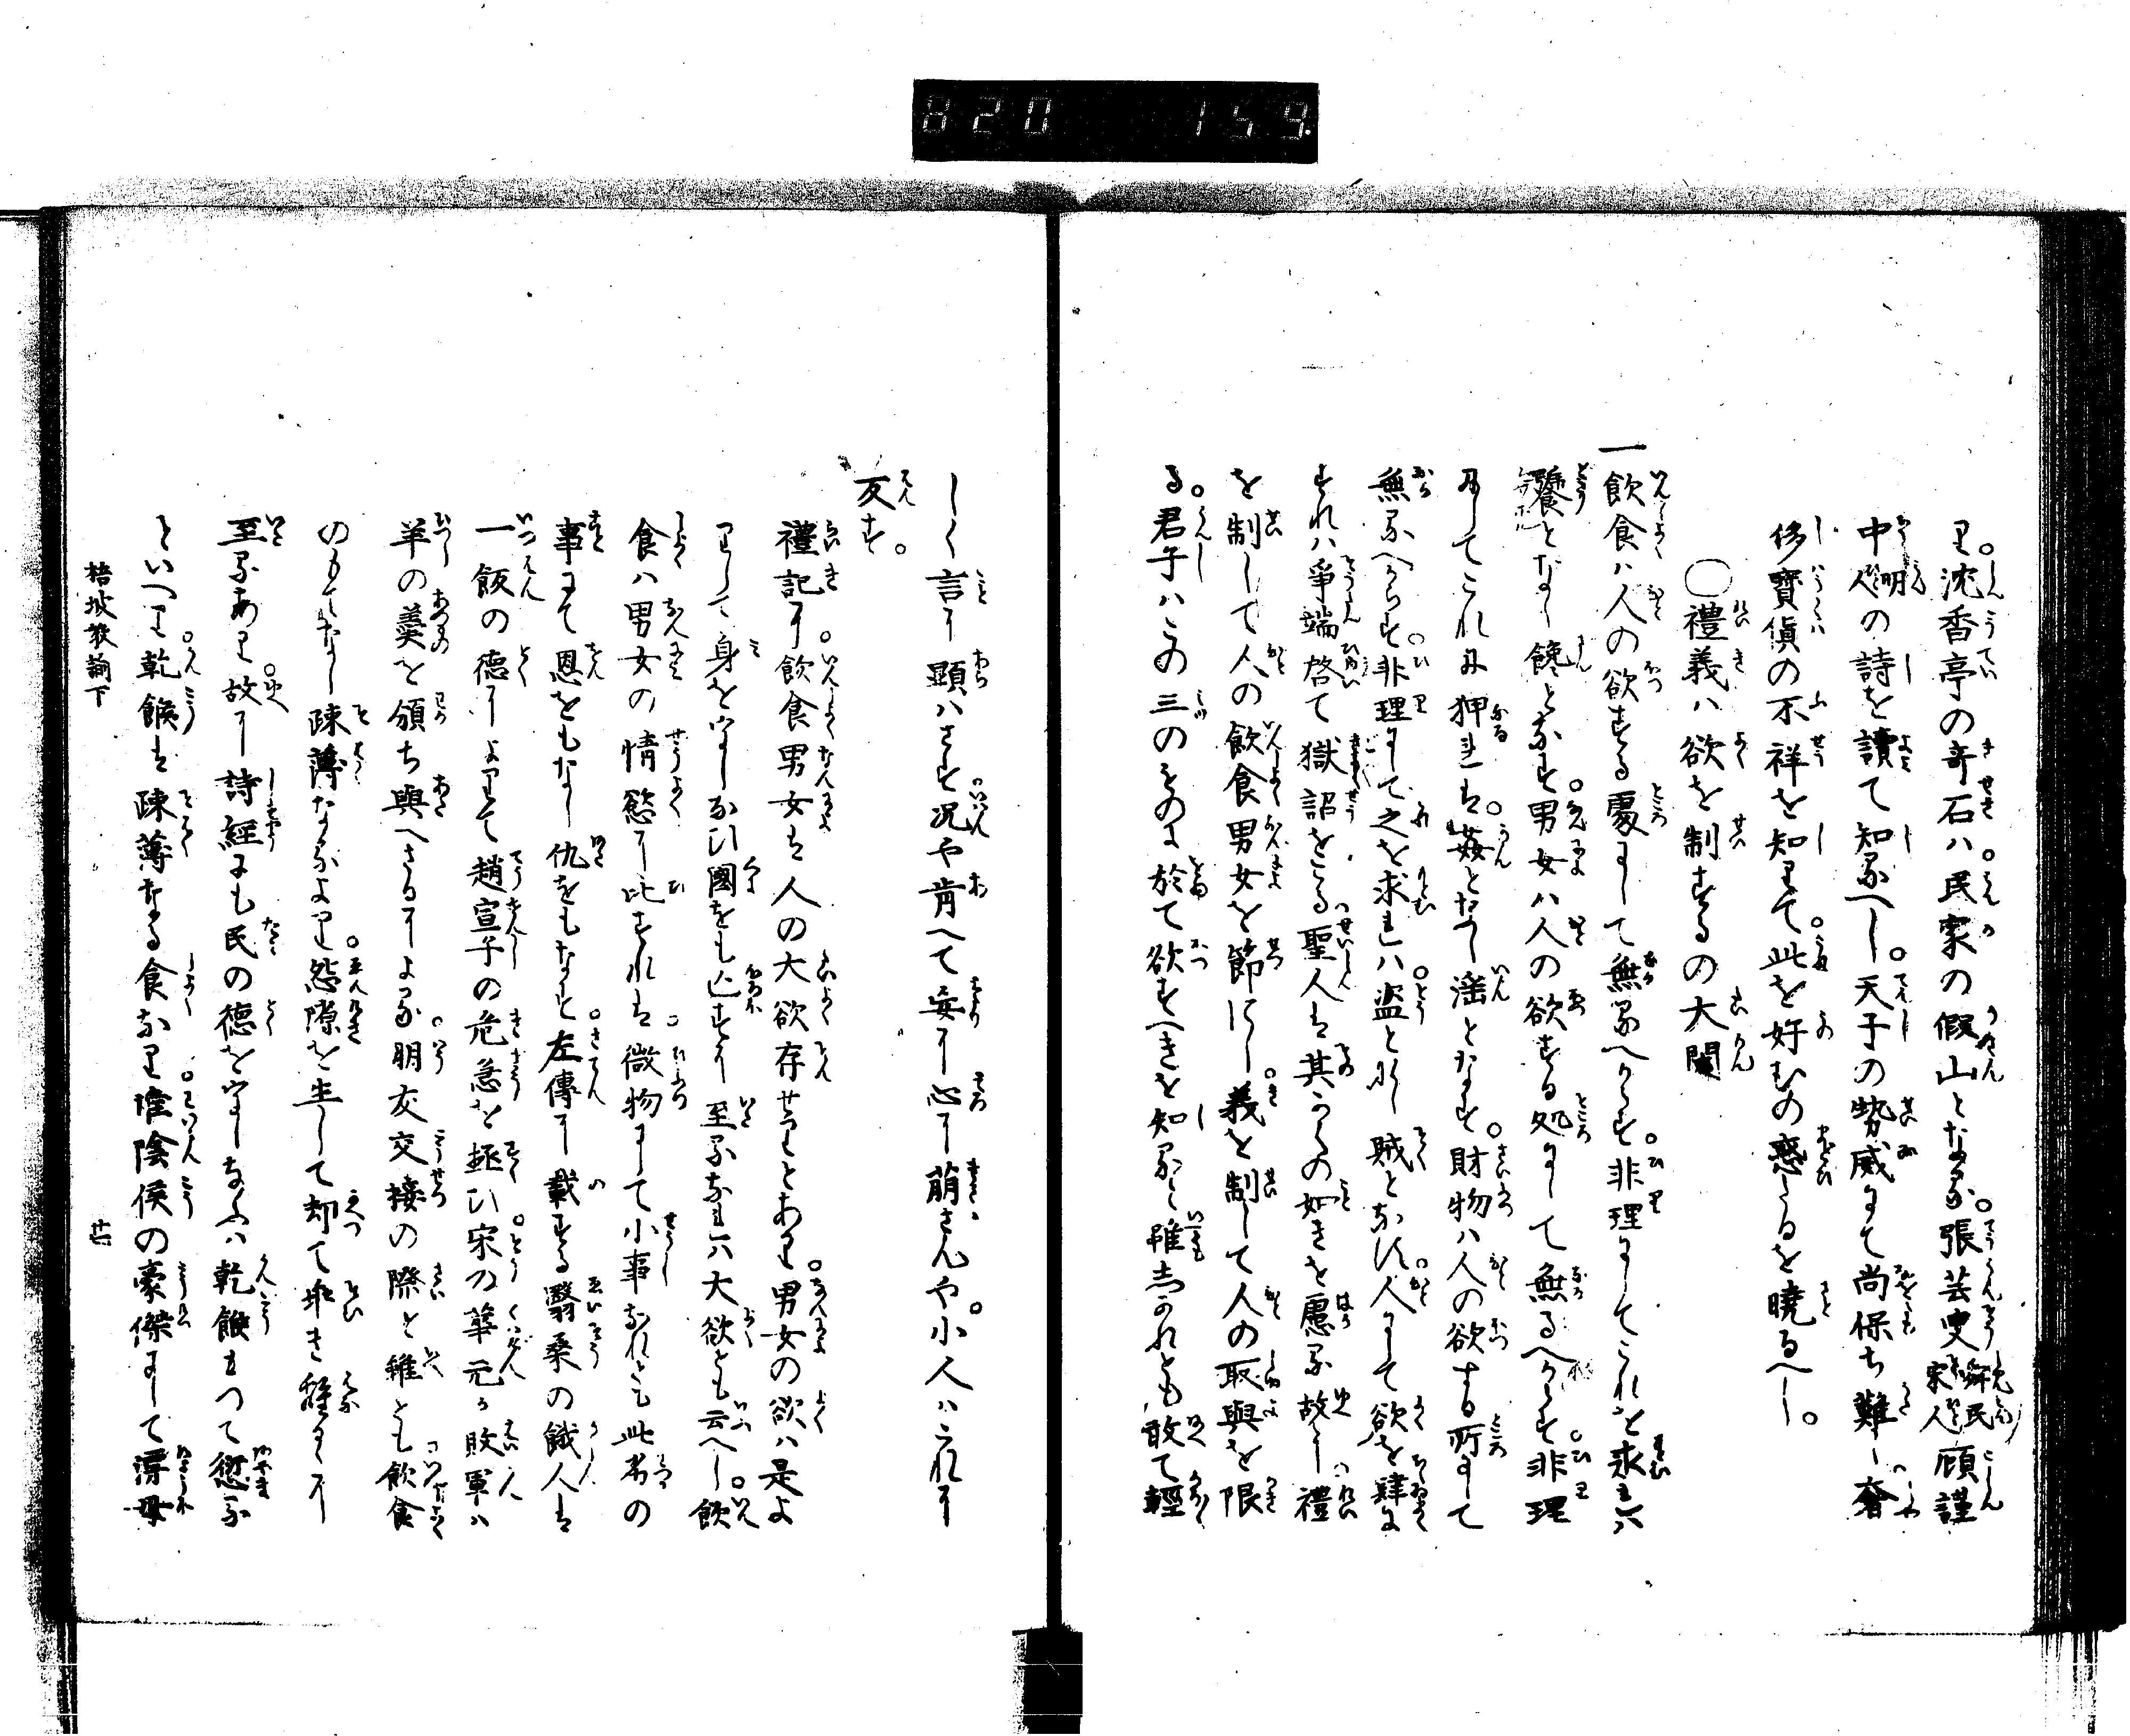 820 159
り。沈香亭の奇石ハ。民家の假山となる。張芸叟宋人舜民顧謹
中明人の詩を讀て知るへし。天子の勢威にて尚保ち難し奢
侈寳貨の不祥を知りて。此を好むの惑へるを曉るへし。
○禮義ハ欲を制するの大閑
一飲食ハ人の欲する處にして無るへからす。非理にしてこれを求れハ
饕となし饞となす。男女ハ人の欲する処にして無るへからす。非理
にしてこれに狎れは。姦となし滛となす。財物ハ人の欲する所にして
無るへからす。非理にして之を求れハ。盗となし賊となす。人にして欲を肆に
すれハ爭端啓て獄詔をこる聖人は其かくの如きを慮る故に禮
を制して人の飲食男女を節にし。義を制して人の取與を限
る。君子ハこの三のものに於て欲すへきを知ると雖しかれとも敢て輕
しく言に顯ハさす。况や肯へて妄に心に萠さんや。小人ハこれに
反す。
禮記に。飲食男女は人の大欲存せりとあり。男女の欲ハ是よ
りして身をうしなひ國をも亡すに至るなれハ大欲とも云へし。飲
食ハ男女の情慾に比すれは。微物にして小事なれとも此者の
事にて恩をもなし仇をもなす。左傳に載する翳桑の餓人は
一飯の德によりて趙宣子の危急を拯ひ。宋の華元か敗軍ハ
羊の羮を頒ち與へさるによる。朋友交接の際と雖とも。飲食
のもてなし疎薄なるより。怨隙を生して却て非き離るゝに
至るあり。故に詩經にも民の德をうしなふハ乾餱もつて愆る
といへり。乾餱は疎薄なる食なり。淮陰侯の豪傑にして漂母
梧坡教諭下